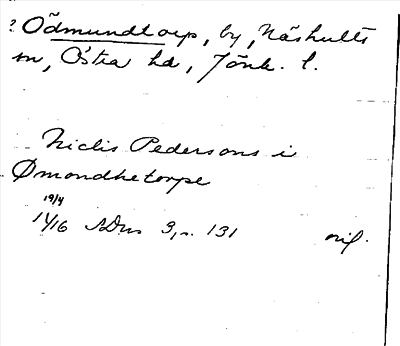 ? Ödmundtorp, by, Näshults
sn, Östra hd, Jönk. l.
Niclis Pedersons i
Ømondhetorpe
19/4
1416 SDns 3, s. 131 orig.